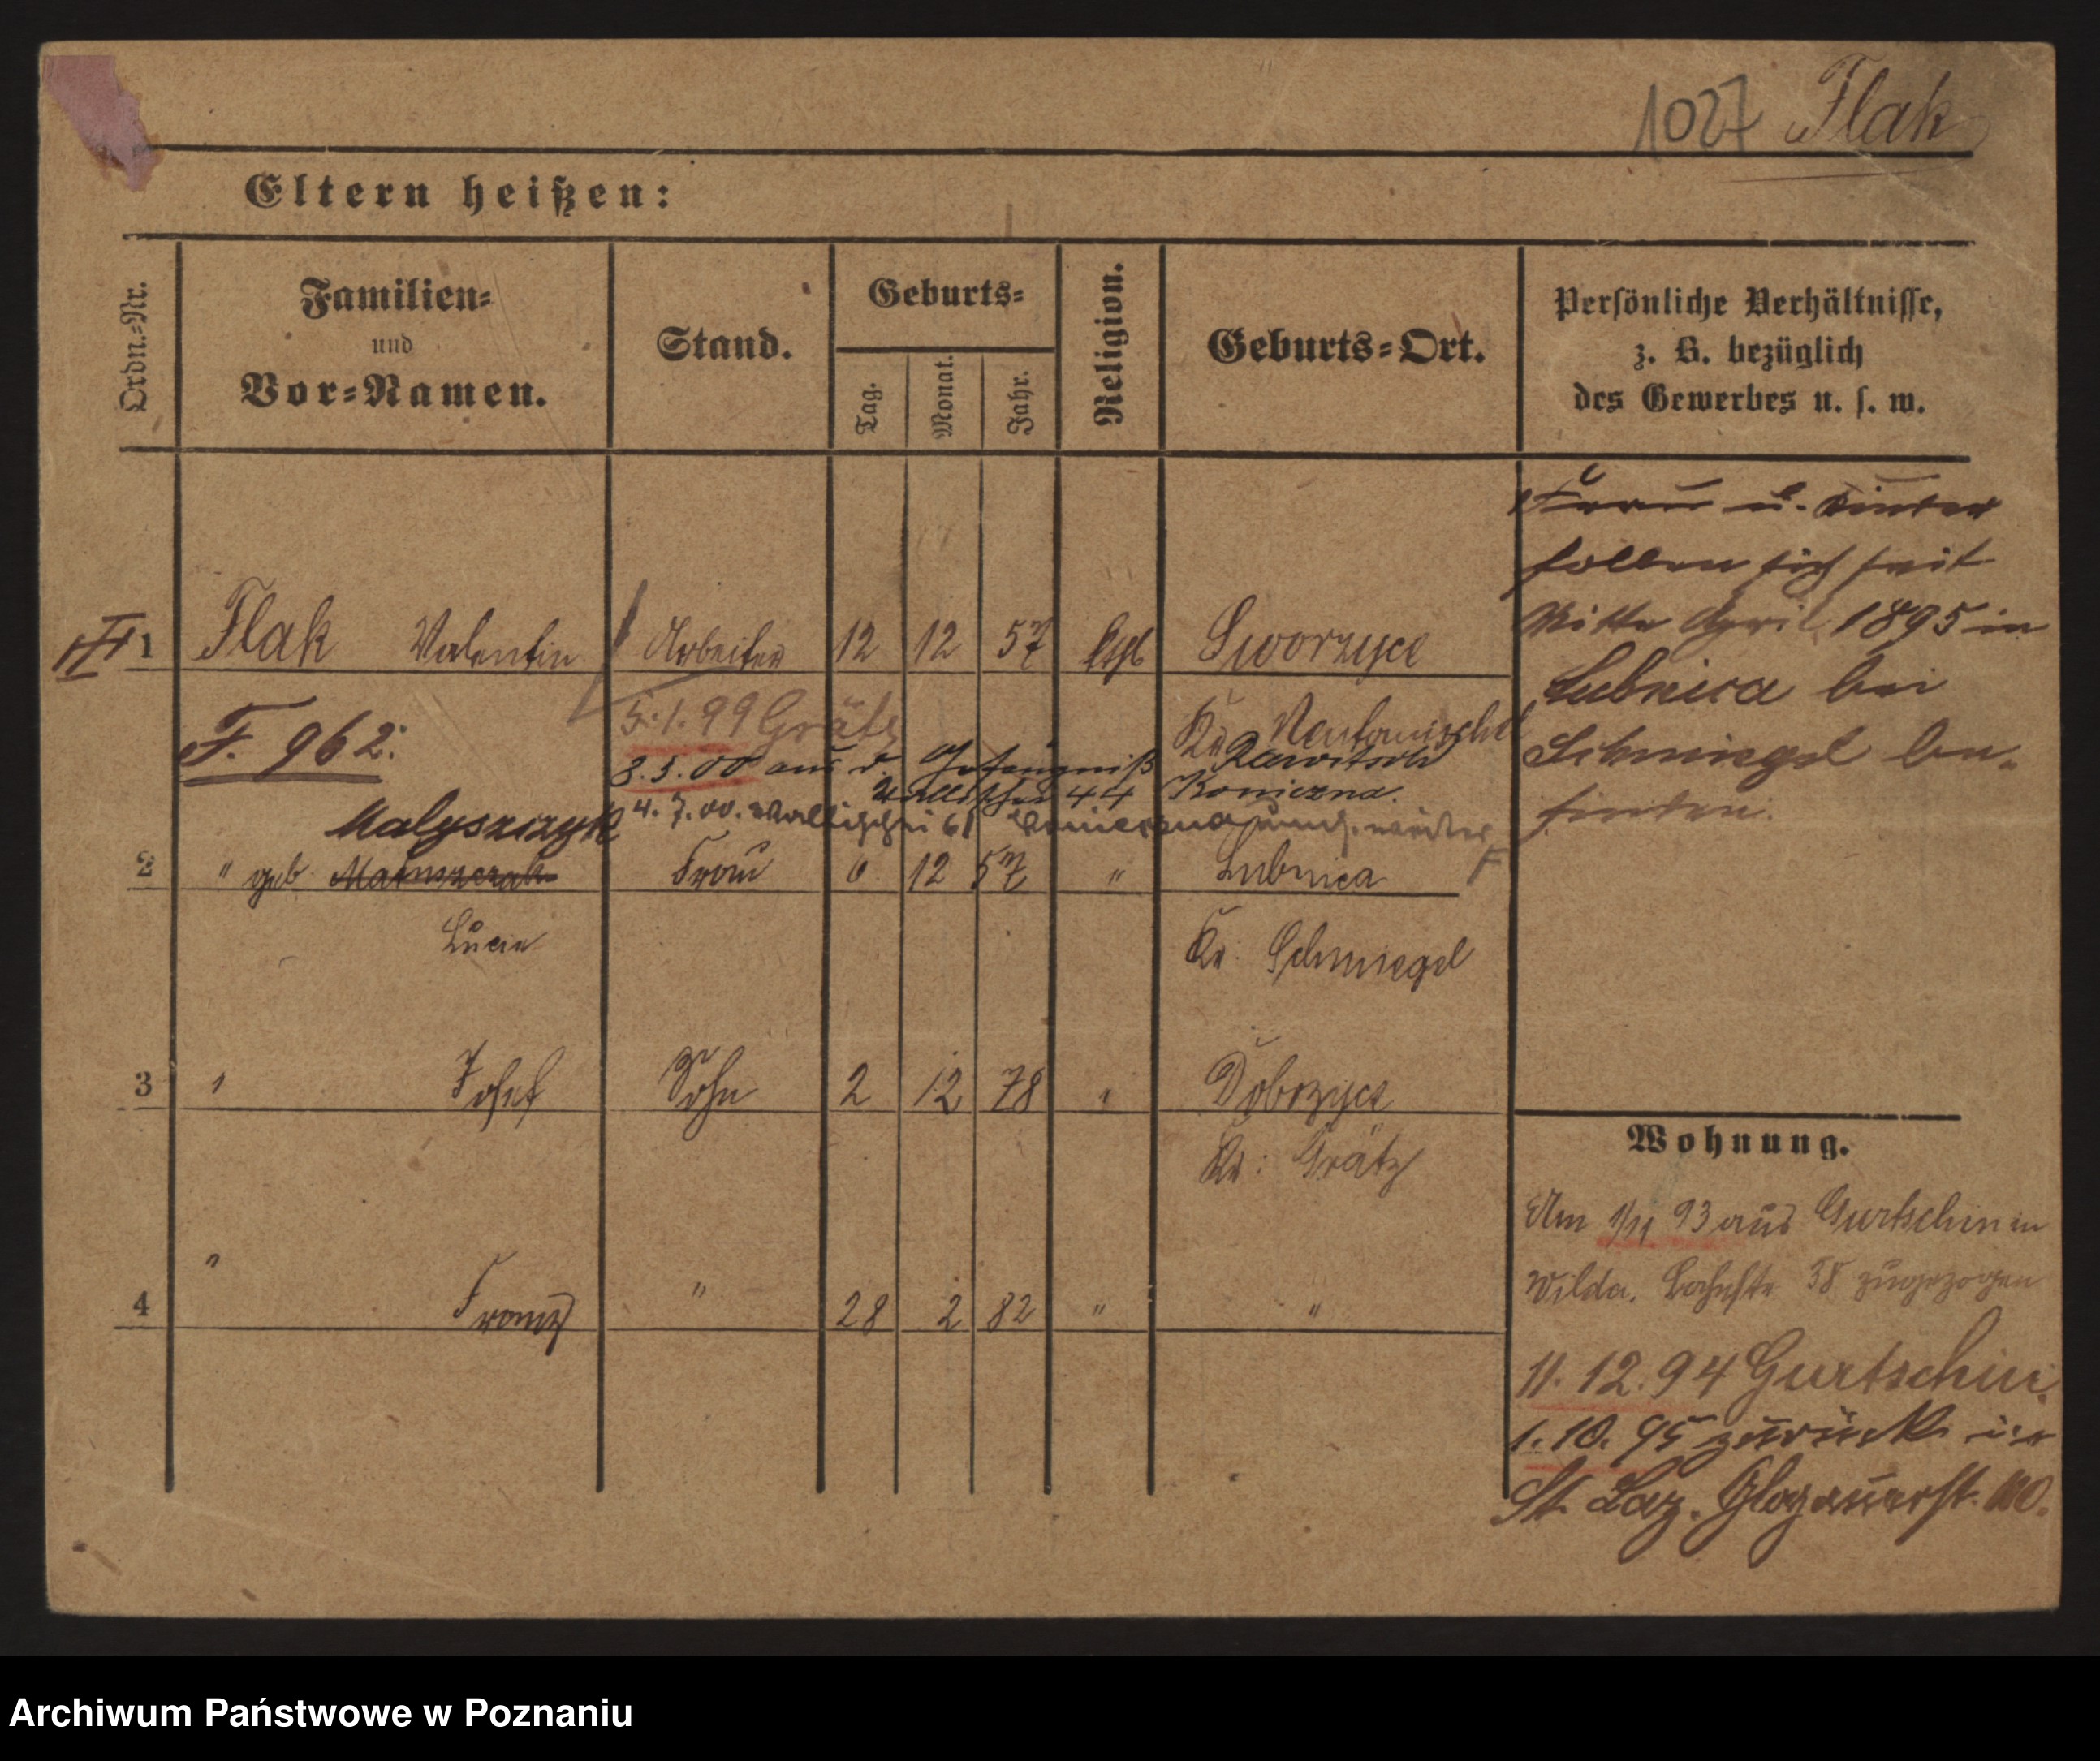 1027 Flak
Eltern heißen:
Ordn.=Nr.
Familien=
und
Vor=Namen.
Stand.
Geburts=
Tag.
Monat.
Jahr.
Religion.
Geburts=Ort.
Persönliche Verhältnisse,
z. B. bezüglich
des Gewerbes u. s. w.
1 Flak Valentin Arbeiter 12 12 57 Sworzyce
5.1.99 Grätz
Kr Neutomischel
F. 962.
8.5.00 aus d. Gefängniß Rawitsch
Wallischei 44 Koniezna.
4.7.00. Wallischei 61
Malyszczyk
2 " geb. Frau 6 12 57 " Lubnica
Lucie
Kr. Schmiegel
3 " Josef Sohn 2 12 78 " Dobrzyce
Kr: Grätz
4 " Franz " 28 2 82 " "
Frau u. Kinder
sollen sich seit
Mitte April 1895 in
Lubnica bei
Schmiegel be-
finden.
Wohnung.
Am 1/11 93 aus Gurtschin in
Wilda, Bahnstr 38 zugezogen
11.12.94 Gurtschin.
1.10.95 zurück in
St. Laz. Glogauerst.
Archiwum Państwowe w Poznaniu